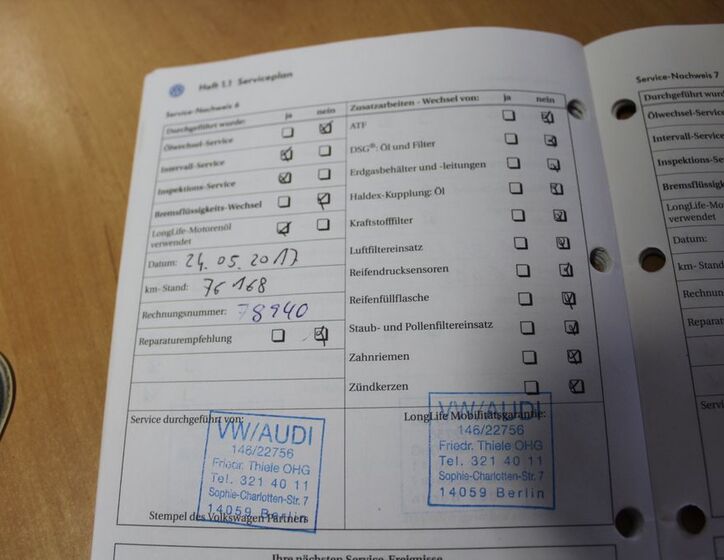 Heft 1.1 Serviceplan
Service-Nachweis 6
Durchgeführt wurde: ja nein
Ölwechsel-Service
Intervall-Service
Inspektions-Service
Bremsflüssigkeits-Wechsel
LongLife-Motorenöl
verwendet
Datum: 24.05.2017
km-Stand: 76168
Rechnungsnummer: 78940
Reparaturempfehlung
Zusatzarbeiten - Wechsel von: ja nein
ATF
DSG®: Öl und Filter
Erdgasbehälter und -leitungen
Haldex-Kupplung: Öl
Kraftstofffilter
Luftfiltereinsatz
Reifendrucksensoren
Reifenfüllflasche
Staub- und Pollenfiltereinsatz
Zahnriemen
Zündkerzen
Service durchgeführt von:
VW/AUDI
146/22756
Friedr. Thiele OHG
Tel. 321 40 11
Sophie-Charlotten-Str. 7
14059 Berlin
Stempel des Volkswagen Partners
LongLife Mobilitätsgarantie:
VW/AUDI
146/22756
Friedr. Thiele OHG
Tel. 321 40 11
Sophie-Charlotten-Str. 7
14059 Berlin
Ihre nächsten Service-Ereignisse
Service-Nachweis 7
Durchgeführt wurde
Ölwechsel-Service
Intervall-Service
Inspektions-Service
Bremsflüssigkeits
LongLife-Motoren
verwendet
Datum:
km-Stand:
Rechnungsnum
Reparature
Service